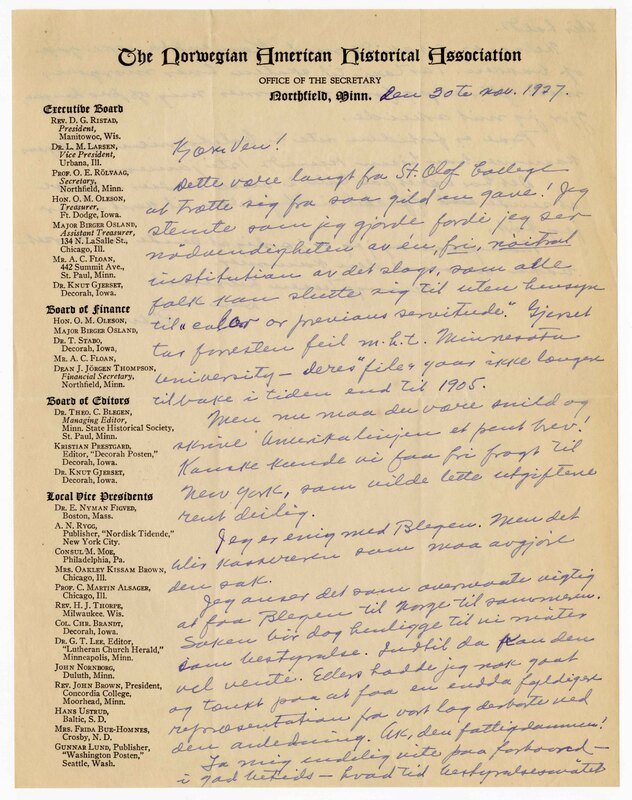 The Norwegian American Historical Association
OFFICE OF THE SECRETARY
Northfield, Minn. den 30te nov. 1927.
Executive Board
REV. D. G. RISTAD,
President,
Manitowoc, Wis.
DR. L. M. LARSEN,
Vice President,
Urbana, Ill.
PROF. O. E. RÖLVAAG,
Secretary,
Northfield, Minn.
HON. O. M. OLESON,
Treasurer,
Ft. Dodge, Iowa.
MAJOR BIRGER OSLAND,
Assistant Treasurer,
134 N. LaSalle St.,
Chicago, Ill.
MR. A. C. FLOAN,
442 Summit Ave.,
St. Paul, Minn.
DR. KNUT GJERSET,
Decorah, Iowa.
Board of Finance
HON. O. M. OLESON,
MAJOR BIRGER OSLAND,
DR. T. STABO,
Decorah, Iowa.
MR. A. C. FLOAN,
DEAN J. JÖRGEN THOMPSON,
Financial Secretary,
Northfield, Minn.
Board of Editors
DR. THEO. C. BLEGEN,
Managing Editor,
Minn. State Historical Society,
St. Paul, Minn.
KRISTIAN PRESTGARD,
Editor, "Decorah Posten,"
Decorah, Iowa.
DR. KNUT GJERSET,
Decorah, Iowa.
Local Vice Presidents
DR. E. NYMAN FIGVED,
Boston, Mass.
A. N. RYGG,
Publisher, "Nordisk Tidende,"
New York City.
CONSUL M. MOE,
Philadelphia, Pa.
MRS. OAKLEY KISSAM BROWN,
Chicago, Ill.
PROF. C. MARTIN ALSAGER,
Chicago, Ill.
REV. H. J. THORPE,
Milwaukee. Wis.
COL. CHR. BRANDT,
Decorah, Iowa.
DR. G. T. LEE, Editor,
"Lutheran Church Herald,"
Minneapolis, Minn.
JOHN NORNBORG,
Duluth, Minn.
REV. JOHN BROWN, President,
Concordia College,
Moorhead, Minn.
HANS USTRUD,
Baltic, S. D.
MRS. FRIDA BUE-HOMNES,
Crosby, N. D.
GUNNAR LUND, Publisher,
"Washington Posten,"
Seattle, Wash.
Kjære Ven!
Dette være langt fra St. Olaf College
at trætte sig fra saa gild en gave! Jeg
stemte som jeg gjorde fordi jeg ser
nödvendigheten av en, fri, nöitral
institution av det slags, som alle
folk kan slutte sig til uten hensyn
til "color or previous servitude." Gjerset
tar forresten feil m.h.t. Minnesota
University – deres "file" gaar ikke længere
tilbake i tiden end til 1905.
Men nu maa du være snild og
skrive Amerikalinjen et pent brev!
Kanske kunde vi faa fri fragt til
New York, som vilde lette utgiftene
rent deilig.
Jeg er enig med Blegen. Men det
blir kassereren som maa avgjöre
den sak.
Jeg anser det som overmaate vigtig
at faa Blegen til Norge til sommeren.
Saken bör dog henligge til vi mötes
som bestyrelse. Indtil da kan den
vel vente. Ellers hadde jeg nok gaat
og tænkt paa at faa en endda fyldigere
representation fra vort lag derborte ved
den anledning. Ak, den fattigdommen!
La mig endelig vite paa forhaand –
i god betids – hvad tid bestyrelsesmötet